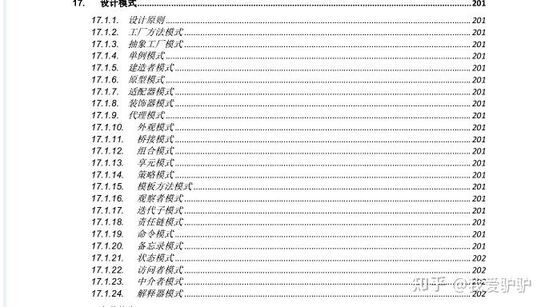 17. 设计模式 201
17.1.1. 设计原则 201
17.1.2. 工厂方法模式 201
17.1.3. 抽象工厂模式 201
17.1.4. 单例模式 201
17.1.5. 建造者模式 201
17.1.6. 原型模式 201
17.1.7. 适配器模式 201
17.1.8. 装饰器模式 201
17.1.9. 代理模式 201
17.1.10. 外观模式 201
17.1.11. 桥接模式 201
17.1.12. 组合模式 201
17.1.13. 享元模式 201
17.1.14. 策略模式 201
17.1.15. 模板方法模式 201
17.1.16. 观察者模式 201
17.1.17. 迭代子模式 201
17.1.18. 责任链模式 201
17.1.19. 命令模式 201
17.1.20. 备忘录模式 201
17.1.21. 状态模式 202
17.1.22. 访问者模式 202
17.1.23. 中介者模式 202
17.1.24. 解释器模式 202
知乎 @我爱驴驴